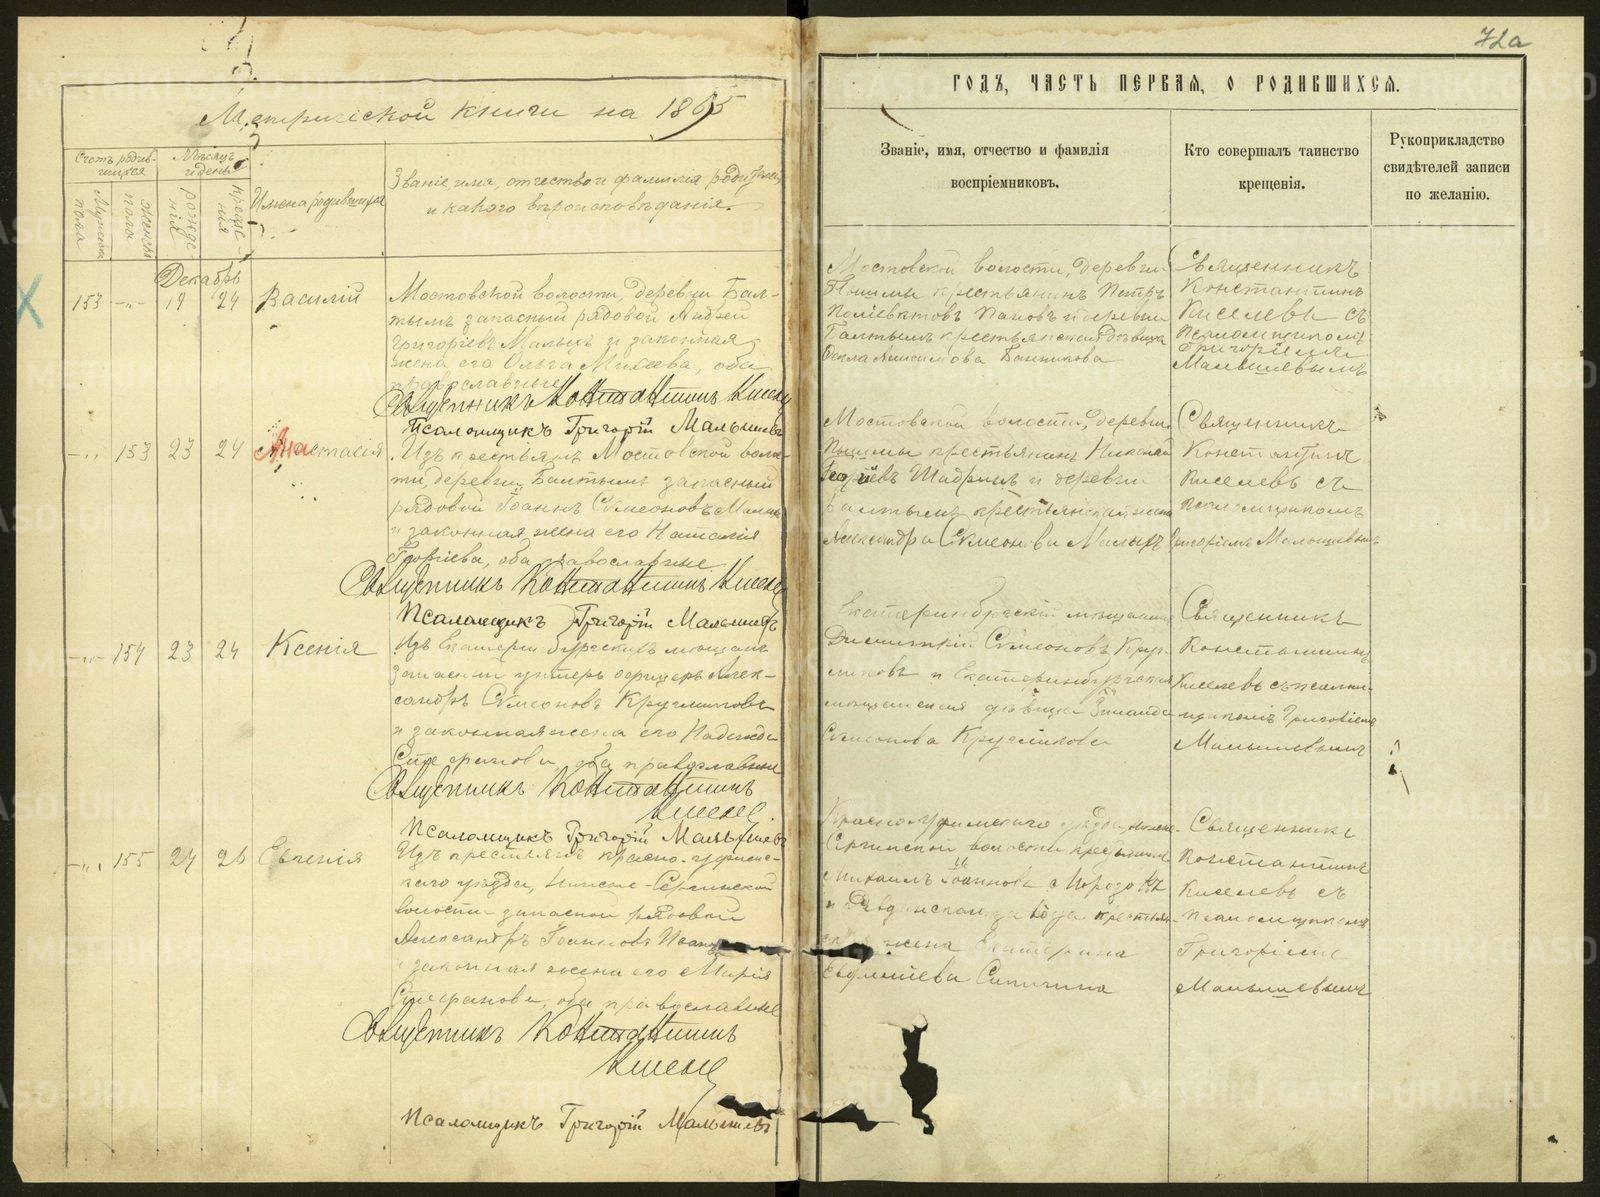 72а
Метрической книги на 1865
ГОДЪ, ЧАСТЬ ПЕРВАЯ, О РОДИВШИХСЯ.
Счетъ родив-
шихся
Мѣсяцъ
и день
Мужска
пола
женска
пола
рожде-
нія
креще-
нія
Имена родившихся
Званіе, имя, отчество и фамилія родителей,
и какого вѣроисповѣданія.
Званіе, имя, отчество и фамилія
воспріемниковъ.
Кто совершалъ таинство
крещенія.
Рукоприкладство
свидѣтелей записи
по желанію.
Декабрь
153 -"- 19 24 Василій
Мостовской волости, деревни Бал-
тымъ запасный рядовой Андрей
Григорьевъ Малыхъ и законная
жена его Ольга Михеева, оба
православные
Священникъ Константинъ Киселевъ
Псаломщикъ Григорій Малышевъ
Мостовской волости, деревни
Пышмы крестьянинъ Петръ
Поліевктовъ Пановъ и деревни
Балтымъ крестьянская дѣвица
Фекла Анисимова Банникова
Священникъ
Константинъ
Киселевъ съ
псаломщикомъ
Григоріемъ
Малышевымъ
-"- 153 23 24 Анастасія
Изъ крестьянъ Мостовской волос-
ти, деревни Балтымъ запасный
рядовой Іоаннъ Симеоновъ Малыхъ
и законная жена его Наталія
оба православные
Священникъ Константинъ Киселевъ
Псаломщикъ Григорій Малышевъ
Мостовской волости, деревни
Пышмы крестьянинъ Николай
Шадринъ и деревни
Балтымъ крестьянская жена
Александра Симеонова Малыхъ
Священникъ
Константинъ
Киселевъ съ
псаломщикомъ
Григоріемъ Малышевымъ
-"- 154 23 24 Ксенія
Изъ Екатеринбургскихъ мещанъ
запасный унтеръ офицеръ Алек-
сандръ Симеоновъ Кругликовъ
и законная жена его Надежда
Стефанова, оба православные
Священникъ Константинъ
Киселевъ.
Псаломщикъ Григорій Малышевъ
Екатеринбургскій мещанинъ
Димитрій Симеоновъ Круг-
ликовъ и Екатеринбургская
мещанская дѣвица Зинаида
Симеонова Кругликова
Священникъ
Константинъ
Киселевъ съ псалом-
щикомъ Григоріемъ
Малышевымъ
-"- 155 24 26 Евгенія
Изъ крестьянъ Красно-уфимс-
каго уѣзда, Нижне-Сергинской
волости запасной рядовой
Александръ Іоанновъ
и законная жена его Марія
Стефанова, оба православные
Священникъ Константинъ
Киселевъ
Псаломщикъ Григорій Малышевъ
Красноуфимскаго уѣзда, Нижне-
Сергинской волости крестьянинъ
Михаилъ Іоанновъ Морозовъ
и Ревдинскаго завода крестьян-
жена Екатерина
Сипигина
Священникъ
Константинъ
Киселевъ съ
псаломщикомъ
Григоріемъ
Малышевымъ
METRIKI.GASO-URAL.RU